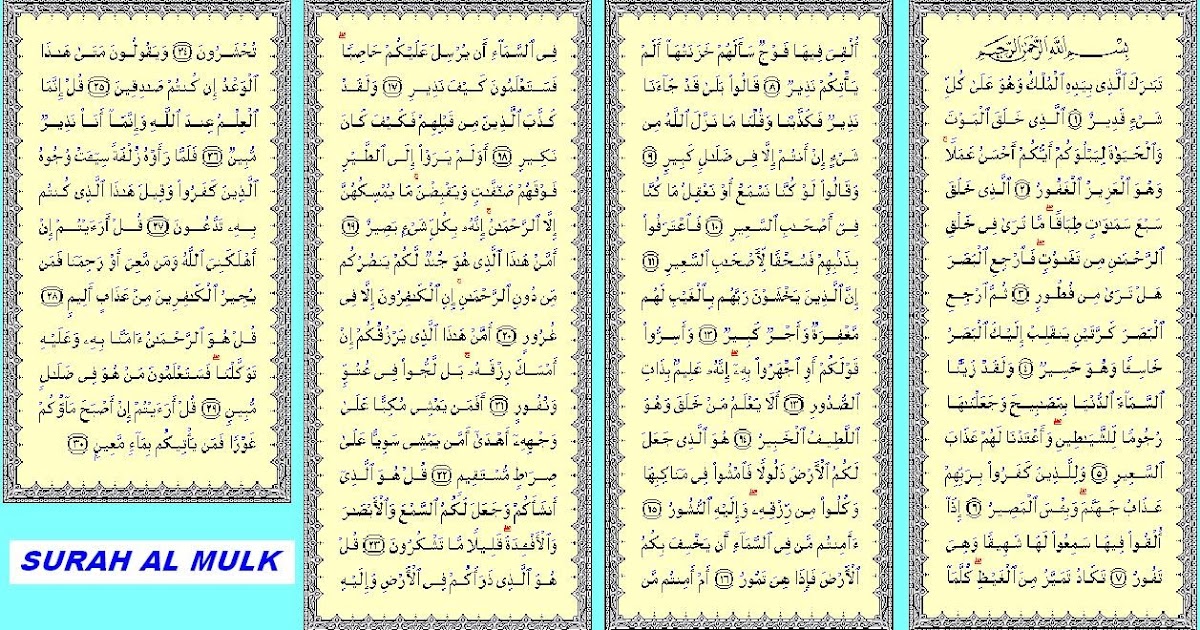 بِسْمِ ٱللَّهِ ٱلرَّحْمَٰنِ ٱلرَّحِيمِ
تَبَٰرَكَ ٱلَّذِى بِيَدِهِ ٱلْمُلْكُ وَهُوَ عَلَىٰ كُلِّ
شَىْءٍ قَدِيرٌ ١ ٱلَّذِى خَلَقَ ٱلْمَوْتَ
وَٱلْحَيَوٰةَ لِيَبْلُوَكُمْ أَيُّكُمْ أَحْسَنُ عَمَلًا
وَهُوَ ٱلْعَزِيزُ ٱلْغَفُورُ ٢ ٱلَّذِى خَلَقَ
سَبْعَ سَمَٰوَٰتٍ طِبَاقًا مَّا تَرَىٰ فِى خَلْقِ
ٱلرَّحْمَٰنِ مِن تَفَٰوُتٍ فَٱرْجِعِ ٱلْبَصَرَ
هَلْ تَرَىٰ مِن فُطُورٍ ٣ ثُمَّ ٱرْجِعِ
ٱلْبَصَرَ كَرَّتَيْنِ يَنقَلِبْ إِلَيْكَ ٱلْبَصَرُ
خَاسِئًا وَهُوَ حَسِيرٌ ٤ وَلَقَدْ زَيَّنَّا
ٱلسَّمَآءَ ٱلدُّنْيَا بِمَصَٰبِيحَ وَجَعَلْنَٰهَا
رُجُومًا لِّلشَّيَٰطِينِ وَأَعْتَدْنَا لَهُمْ عَذَابَ
ٱلسَّعِيرِ ٥ وَلِلَّذِينَ كَفَرُوا۟ بِرَبِّهِمْ
عَذَابُ جَهَنَّمَ وَبِئْسَ ٱلْمَصِيرُ ٦ إِذَآ
أُلْقُوا۟ فِيهَا سَمِعُوا۟ لَهَا شَهِيقًا وَهِىَ
تَفُورُ ٧ تَكَادُ تَمَيَّزُ مِنَ ٱلْغَيْظِ كُلَّمَآ
أُلْقِىَ فِيهَا فَوْجٌ سَأَلَهُمْ خَزَنَتُهَآ أَلَمْ
يَأْتِكُمْ نَذِيرٌ ٨ قَالُوا۟ بَلَىٰ قَدْ جَآءَنَا
نَذِيرٌ فَكَذَّبْنَا وَقُلْنَا مَا نَزَّلَ ٱللَّهُ مِن
شَىْءٍ إِنْ أَنتُمْ إِلَّا فِى ضَلَٰلٍ كَبِيرٍ ٩
وَقَالُوا۟ لَوْ كُنَّا نَسْمَعُ أَوْ نَعْقِلُ مَا كُنَّا
فِىٓ أَصْحَٰبِ ٱلسَّعِيرِ ١٠ فَٱعْتَرَفُوا۟
بِذَنۢبِهِمْ فَسُحْقًا لِّأَصْحَٰبِ ٱلسَّعِيرِ ١١
إِنَّ ٱلَّذِينَ يَخْشَوْنَ رَبَّهُم بِٱلْغَيْبِ لَهُم
مَّغْفِرَةٌ وَأَجْرٌ كَبِيرٌ ١٢ وَأَسِرُّوا۟
قَوْلَكُمْ أَوِ ٱجْهَرُوا۟ بِهِۦٓ إِنَّهُۥ عَلِيمٌۢ بِذَاتِ
ٱلصُّدُورِ ١٣ أَلَا يَعْلَمُ مَنْ خَلَقَ وَهُوَ
ٱللَّطِيفُ ٱلْخَبِيرُ ١٤ هُوَ ٱلَّذِى جَعَلَ
لَكُمُ ٱلْأَرْضَ ذَلُولًا فَٱمْشُوا۟ فِى مَنَاكِبِهَا
وَكُلُوا۟ مِن رِّزْقِهِۦ وَإِلَيْهِ ٱلنُّشُورُ ١٥
ءَأَمِنتُم مَّن فِى ٱلسَّمَآءِ أَن يَخْسِفَ بِكُمُ
ٱلْأَرْضَ فَإِذَا هِىَ تَمُورُ ١٦ أَمْ أَمِنتُم مَّن
فِى ٱلسَّمَآءِ أَن يُرْسِلَ عَلَيْكُمْ حَاصِبًا
فَسَتَعْلَمُونَ كَيْفَ نَذِيرِ ١٧ وَلَقَدْ
كَذَّبَ ٱلَّذِينَ مِن قَبْلِهِمْ فَكَيْفَ كَانَ
نَكِيرِ ١٨ أَوَلَمْ يَرَوْا۟ إِلَى ٱلطَّيْرِ
فَوْقَهُمْ صَٰٓفَّٰتٍ وَيَقْبِضْنَ مَا يُمْسِكُهُنَّ
إِلَّا ٱلرَّحْمَٰنُ إِنَّهُۥ بِكُلِّ شَىْءٍۭ بَصِيرٌ ١٩
أَمَّنْ هَٰذَا ٱلَّذِى هُوَ جُندٌ لَّكُمْ يَنصُرُكُم
مِّن دُونِ ٱلرَّحْمَٰنِ إِنِ ٱلْكَٰفِرُونَ إِلَّا فِى
غُرُورٍ ٢٠ أَمَّنْ هَٰذَا ٱلَّذِى يَرْزُقُكُمْ إِنْ
أَمْسَكَ رِزْقَهُۥ بَل لَّجُّوا۟ فِى عُتُوٍّ
وَنُفُورٍ ٢١ أَفَمَن يَمْشِى مُكِبًّا عَلَىٰ
وَجْهِهِۦٓ أَهْدَىٰٓ أَمَّن يَمْشِى سَوِيًّا عَلَىٰ
صِرَٰطٍ مُّسْتَقِيمٍ ٢٢ قُلْ هُوَ ٱلَّذِىٓ
أَنشَأَكُمْ وَجَعَلَ لَكُمُ ٱلسَّمْعَ وَٱلْأَبْصَٰرَ
وَٱلْأَفْـِٔدَةَ قَلِيلًا مَّا تَشْكُرُونَ ٢٣ قُلْ
هُوَ ٱلَّذِى ذَرَأَكُمْ فِى ٱلْأَرْضِ وَإِلَيْهِ
تُحْشَرُونَ ٢٤ وَيَقُولُونَ مَتَىٰ هَٰذَا
ٱلْوَعْدُ إِن كُنتُمْ صَٰدِقِينَ ٢٥ قُلْ إِنَّمَا
ٱلْعِلْمُ عِندَ ٱللَّهِ وَإِنَّمَآ أَنَا۠ نَذِيرٌ
مُّبِينٌ ٢٦ فَلَمَّا رَأَوْهُ زُلْفَةً سِيٓـَٔتْ وُجُوهُ
ٱلَّذِينَ كَفَرُوا۟ وَقِيلَ هَٰذَا ٱلَّذِى كُنتُم
بِهِۦ تَدَّعُونَ ٢٧ قُلْ أَرَءَيْتُمْ إِنْ
أَهْلَكَنِىَ ٱللَّهُ وَمَن مَّعِىَ أَوْ رَحِمَنَا فَمَن
يُجِيرُ ٱلْكَٰفِرِينَ مِنْ عَذَابٍ أَلِيمٍ ٢٨
قُلْ هُوَ ٱلرَّحْمَٰنُ ءَامَنَّا بِهِۦ وَعَلَيْهِ
تَوَكَّلْنَا فَسَتَعْلَمُونَ مَنْ هُوَ فِى ضَلَٰلٍ
مُّبِينٍ ٢٩ قُلْ أَرَءَيْتُمْ إِنْ أَصْبَحَ مَآؤُكُمْ
غَوْرًا فَمَن يَأْتِيكُم بِمَآءٍ مَّعِينٍۭ ٣٠
SURAH AL MULK